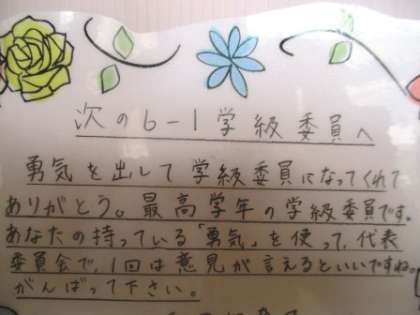 次の6-1学級委員へ
勇気を出して学級委員になってくれて
ありがとう。最高学年の学級委員です。
あなたの持っている「勇気」を使って、代表
委員会で、1回は意見が言えるといいですね。
がんばって下さい。